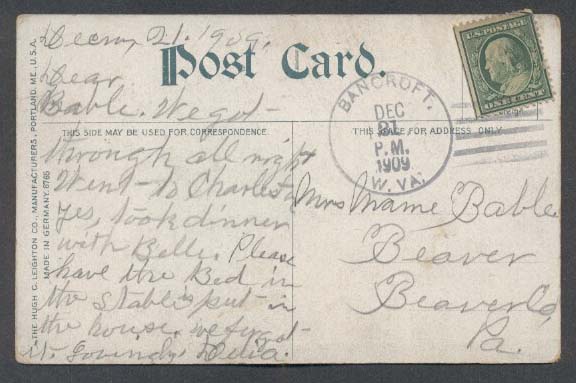 Decem, 21. 1909.
Post Card.
Dear
Bable. We got
THIS SIDE MAY BE USED FOR CORRESPONDENCE.
THIS SPACE FOR ADDRESS ONLY
through all right
Went to Charleston
yes, took dinner
with Belle. Please
have the Bed in
the Stable put in
the house. we forgot
it. Lovingly Delia.
U.S. POSTAGE
ONE CENT
BANCROFT.
DEC
21
P.M.
1909
W. VA.
Mrs Mame Bable
Beaver
Beaver Co,
Pa.
THE HUGH C. LEIGHTON CO., MANUFACTURERS, PORTLAND, ME., U.S.A.
MADE IN GERMANY. 6765